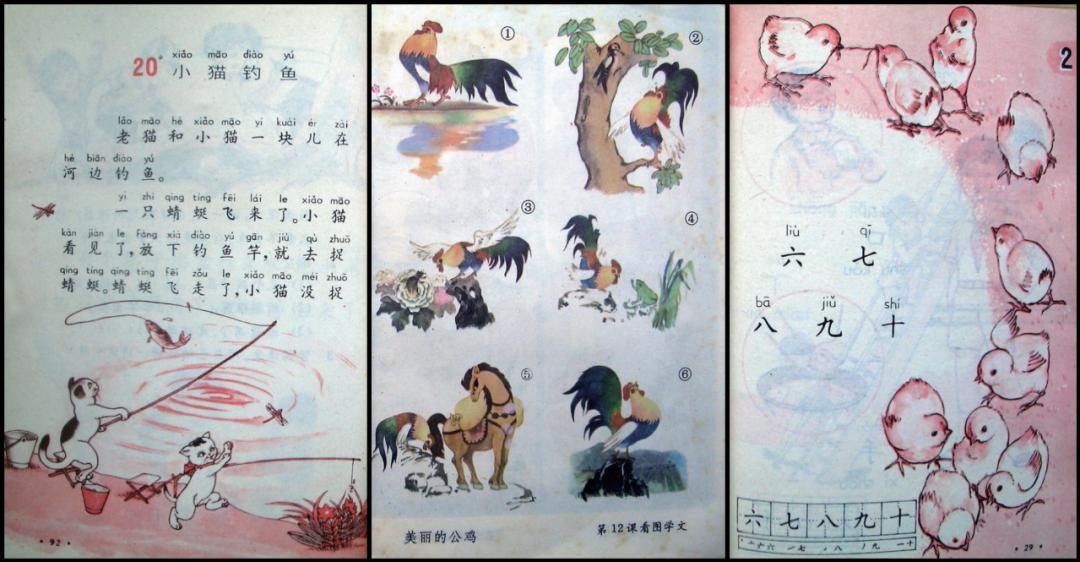 xiǎo māo diào yú
20 小猫钓鱼
lǎo māo hé xiǎo māo yí kuài ér zài
老猫和小猫一块儿在
hé biān diào yú
河边钓鱼。
yì zhī qīng tíng fēi lái le xiǎo māo
一只蜻蜓飞来了。小猫
kàn jiàn le fàng xià diào yú gān jiù qù zhuō
看见了,放下钓鱼竿,就去捉
qīng tíng qīng tíng fēi zǒu le xiǎo māo méi zhuō
蜻蜓。蜻蜓飞走了,小猫没捉
·92·
①
②
③
④
⑤
⑥
美丽的公鸡
第12课看图学文
2
liù qī
六 七
bā jiǔ shí
八 九 十
六七八九十
·29·